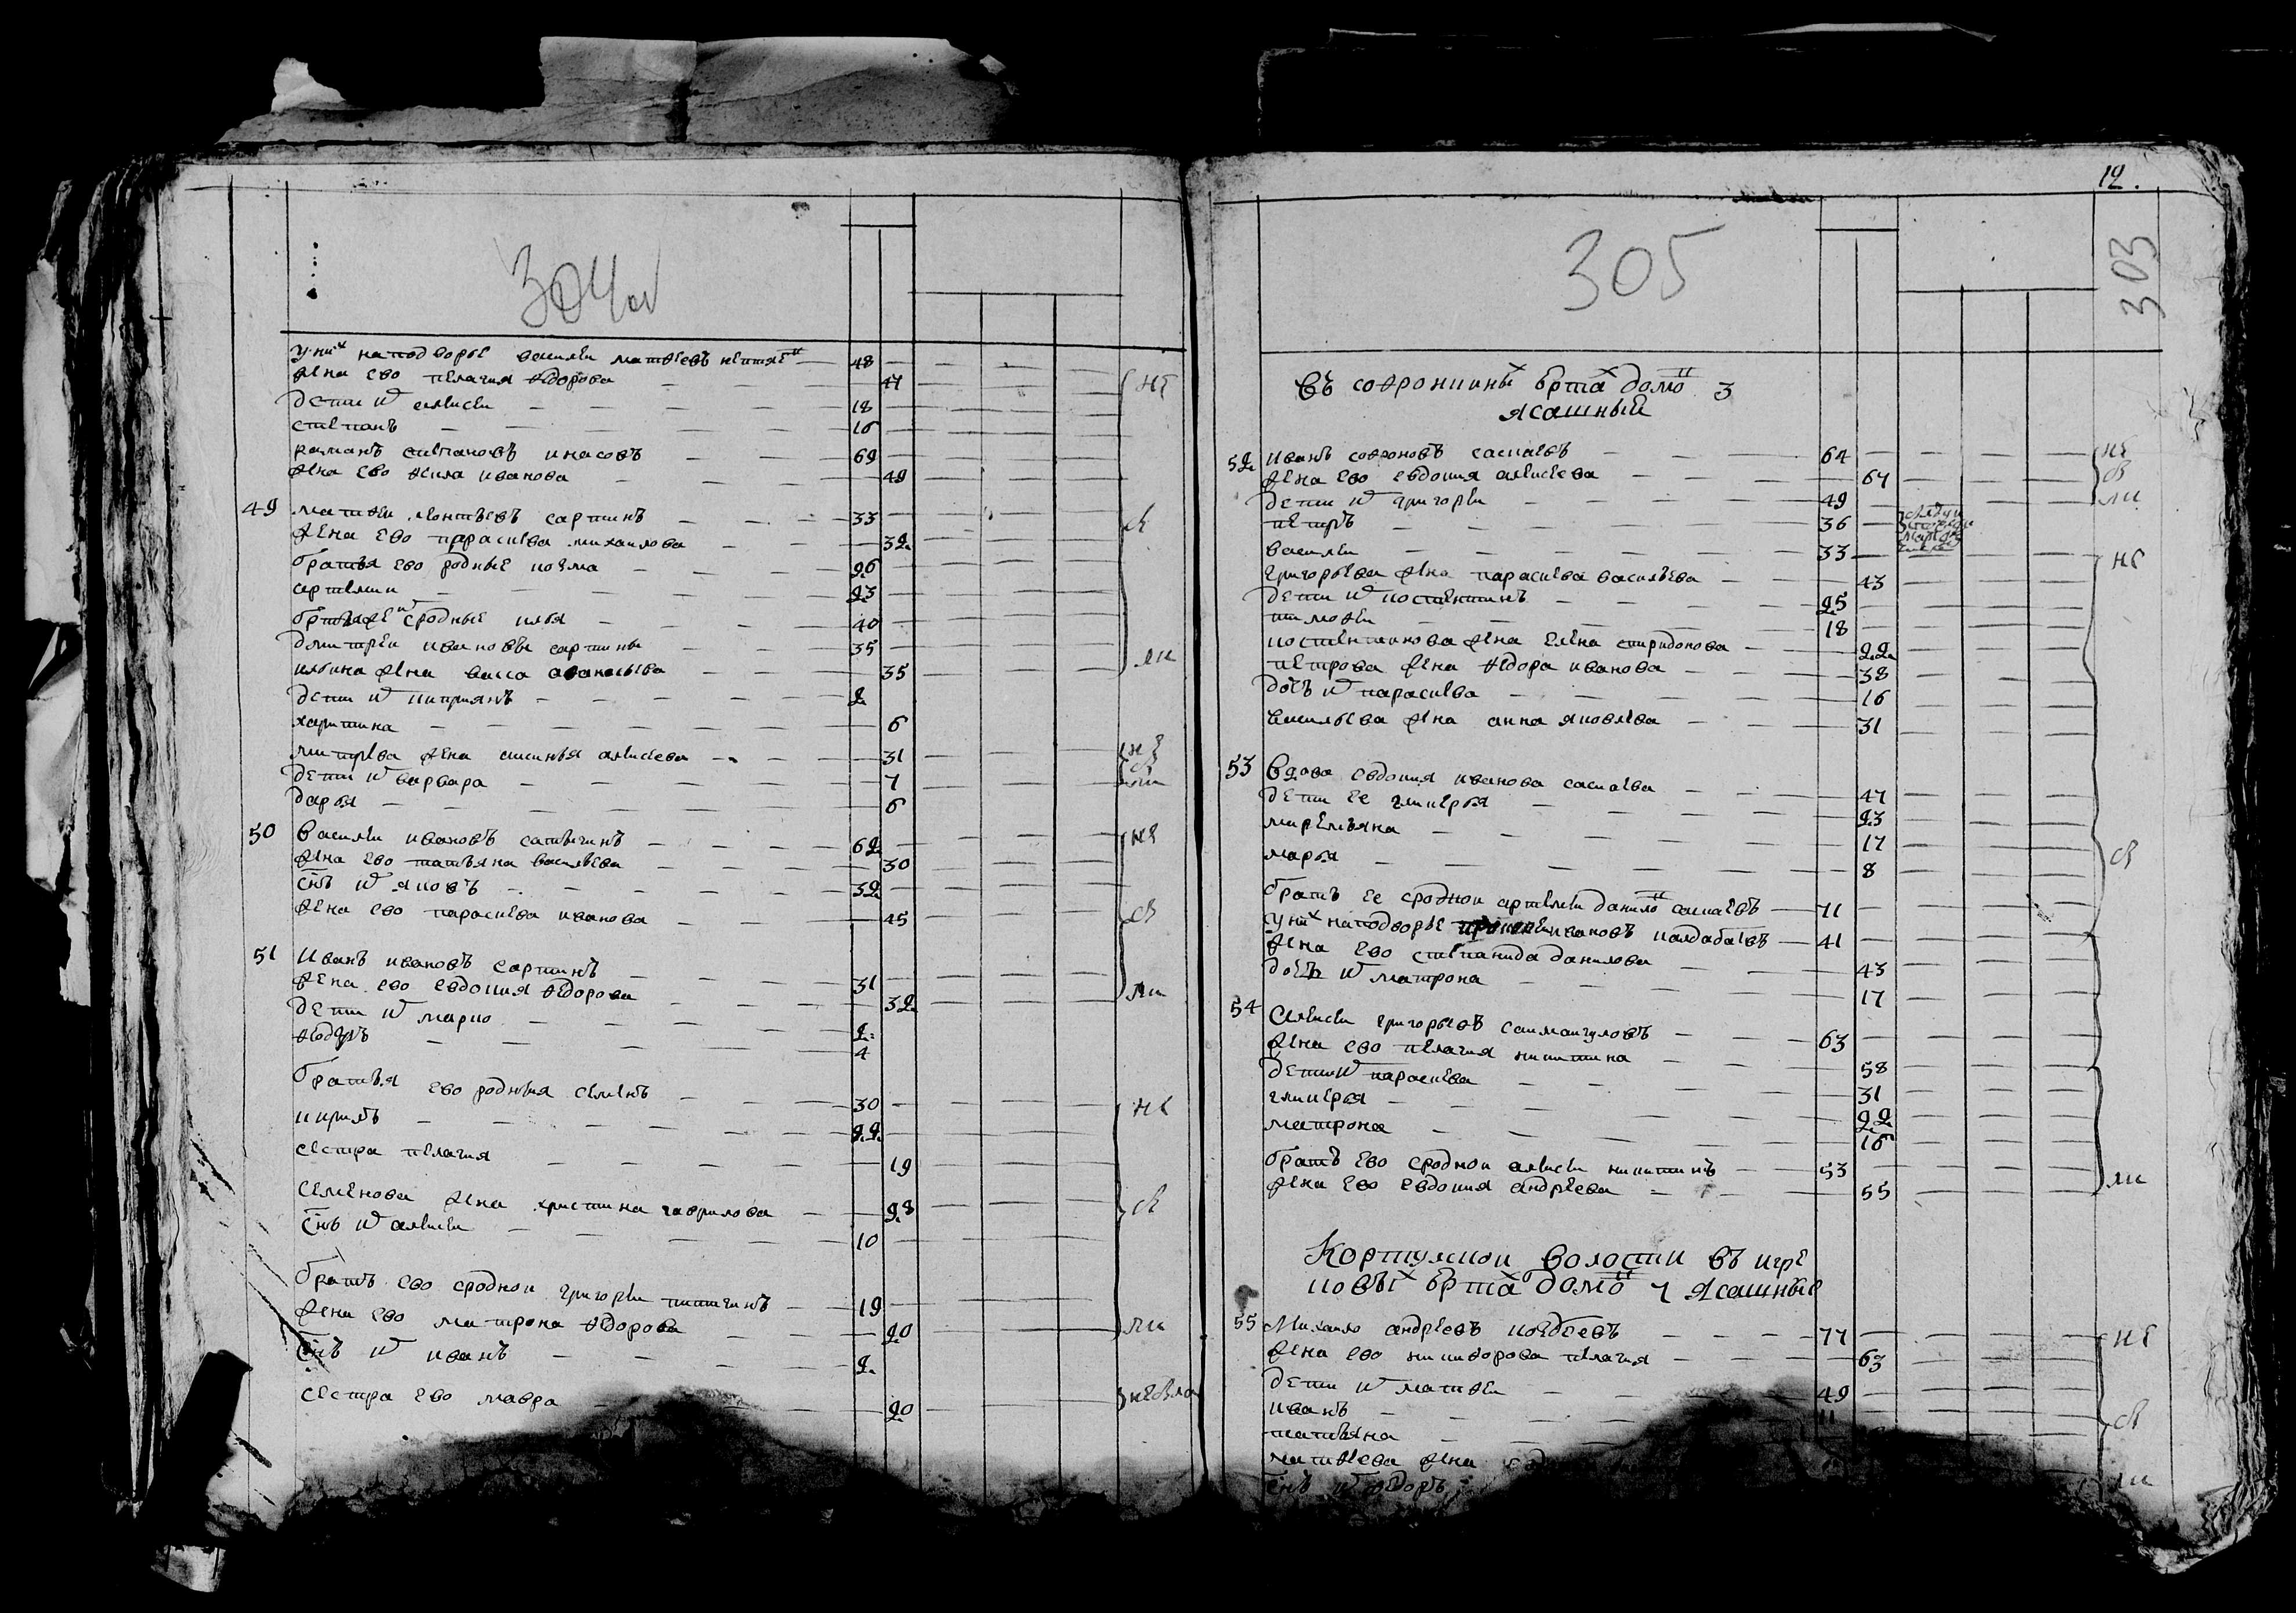 304об
у них на подворье василеи матвѣевъ
48
жена ево пелагия федорова
47
дети их алексеи
18
степанъ
16
раманъ степановъ инасовъ
69
жена ево иванова
49
49 матвеи леонтьевъ сартинъ
33
жена ево парасковья михаилова
32
братья ево родные козма
26
артемии
23
братья же их сродные илья
40
дмитреи ивановы сартины
35
ильина жена васса афанасьева
35
дети их киприянъ
2
харитина
6
митрева жена аксинья алексеева
31
дети их варвара
7
дарья
6
50 василеи ивановъ сапычинъ
62
жена ево татьяна васильева
30
снъ их яковъ
32
жена ево парасковья иванова
45
51 Иванъ ивановъ сартинъ
31
жена ево евдокия федорова
32
дети их марко
2
федоръ
4
братья ево родныя семенъ
30
кирилъ
22
сестра пелагия
19
семенова жена христина гаврилова
28
снъ их алексеи
10
братъ ево сроднои григореи
19
жена ево матрона федорова
20
снъ их иванъ
2
сестра ево мавра
20
не
ли
не
ли
не
св
ли
не
св
ли
12.
305
303
Въ софронкины юртах домов 3
ясашные
52 иванъ софроновъ саскаевъ
64
жена ево евдокия алексеева
64
дети их григореи
49
петръ
36
василеи
33
григорьева жена парасковья васильева
43
дети их костентинъ
25
тимофеи
18
костентинова жена елена спиридонова
22
петрова жена федора иванова
38
дочь их парасковья
16
васильева жена анна яковлева
31
53 Вдова евдокия иванова саскаева
47
дети ее гликерья
23
маремьяна
17
марья
8
братъ ее сроднои артемеи данилов саскаевъ
71
у них на подворье ивановъ калдабаевъ
41
жена ево степанида данилова
43
дочь их матрона
17
54 Алексеи григорьевъ саимангуловъ
63
жена ево пелагия никитина
58
дети их парасковья
31
гликерья
22
матрона
16
братъ ево сроднои алексеи никитинъ
53
жена ево евдокия андреева
55
Кортулскои волости въ игре
ковых юртах домов 4 ясашные
55 Михаило андреевъ
77
жена ево никифорова пелагия
63
дети их матвеи
49
иванъ
11
татьяна
матвеева жена
снъ их федоръ
не
св
ли
не
св
ли
не
св
ли